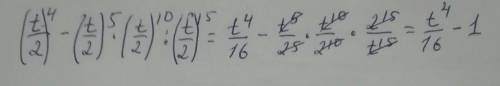 (t/2)^4 - (t/2)^5 · (t/2)^10 : (t/2)^15 = t^4/16 - t^5/2^5 · t^10/2^10 · 2^15/t^15 = t^4/16 - 1